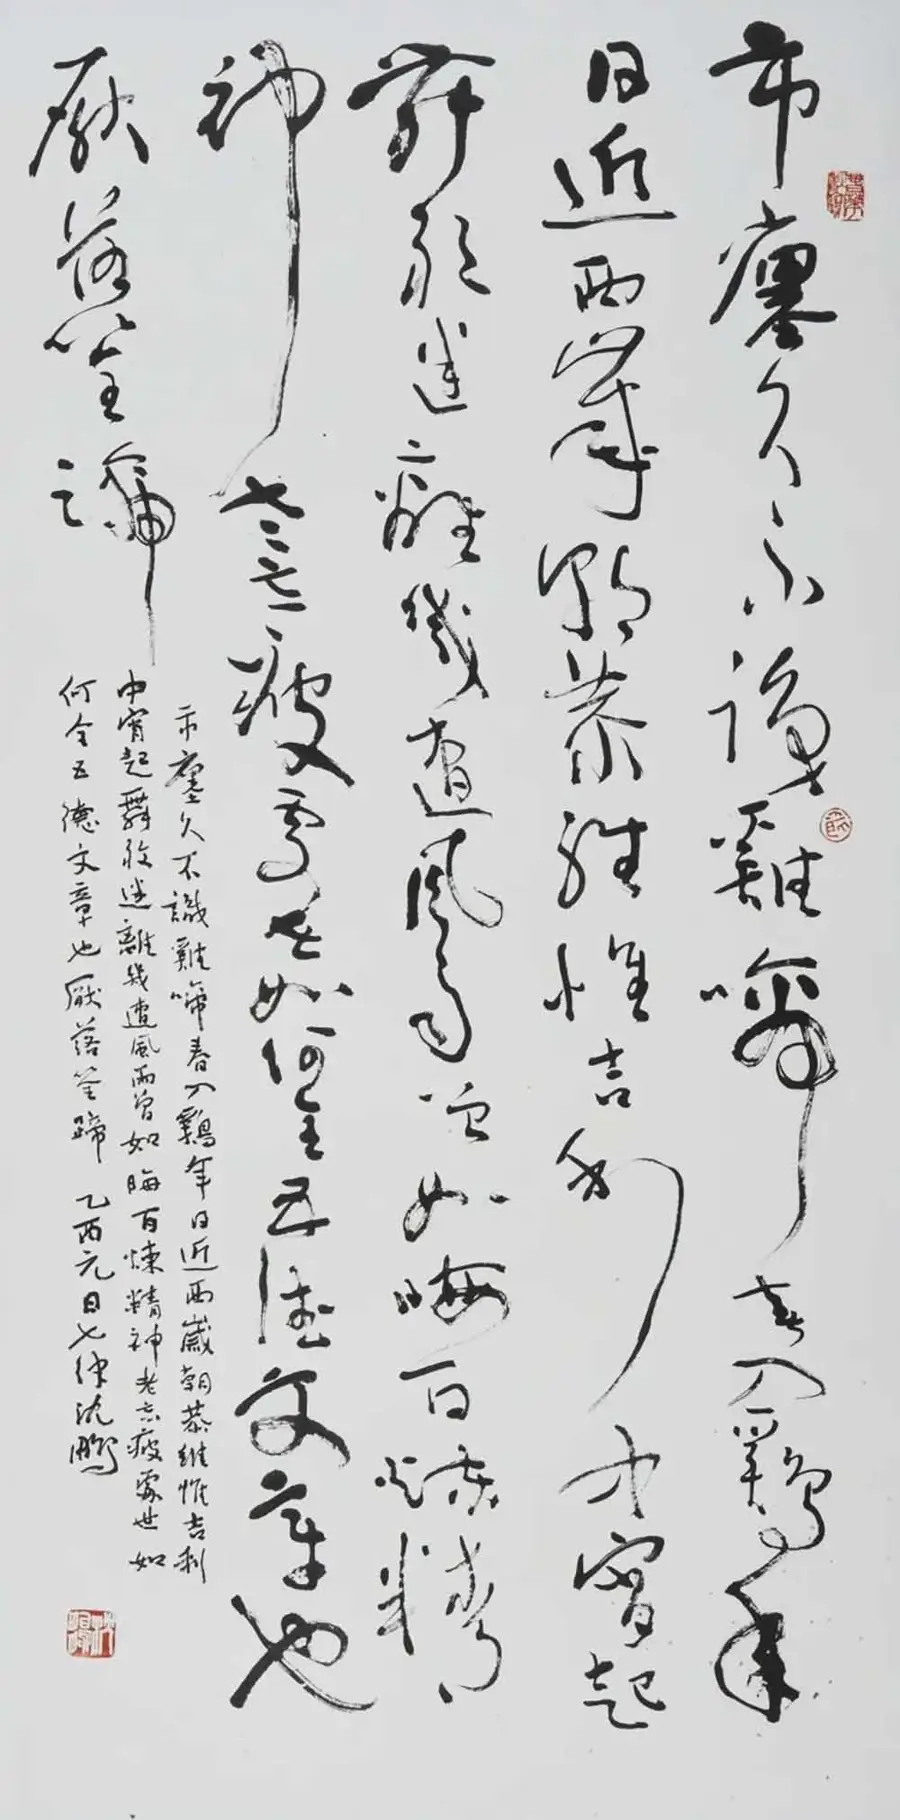 市廛久不識雞啼春入鷄年
日近西歲朝恭維惟吉利中宵起
舞欲迷離幾遭風雨曾如晦百煉精
神老忘疲處世如何全五德文章也
厭落筌蹄
市廛久不識雞啼春入鷄年日近西歲朝恭維惟吉利
中宵起舞欲迷離幾遭風雨曾如晦百煉精神老忘疲處世如
何全五德文章也厭落筌蹄 乙酉元日七律沈鵬